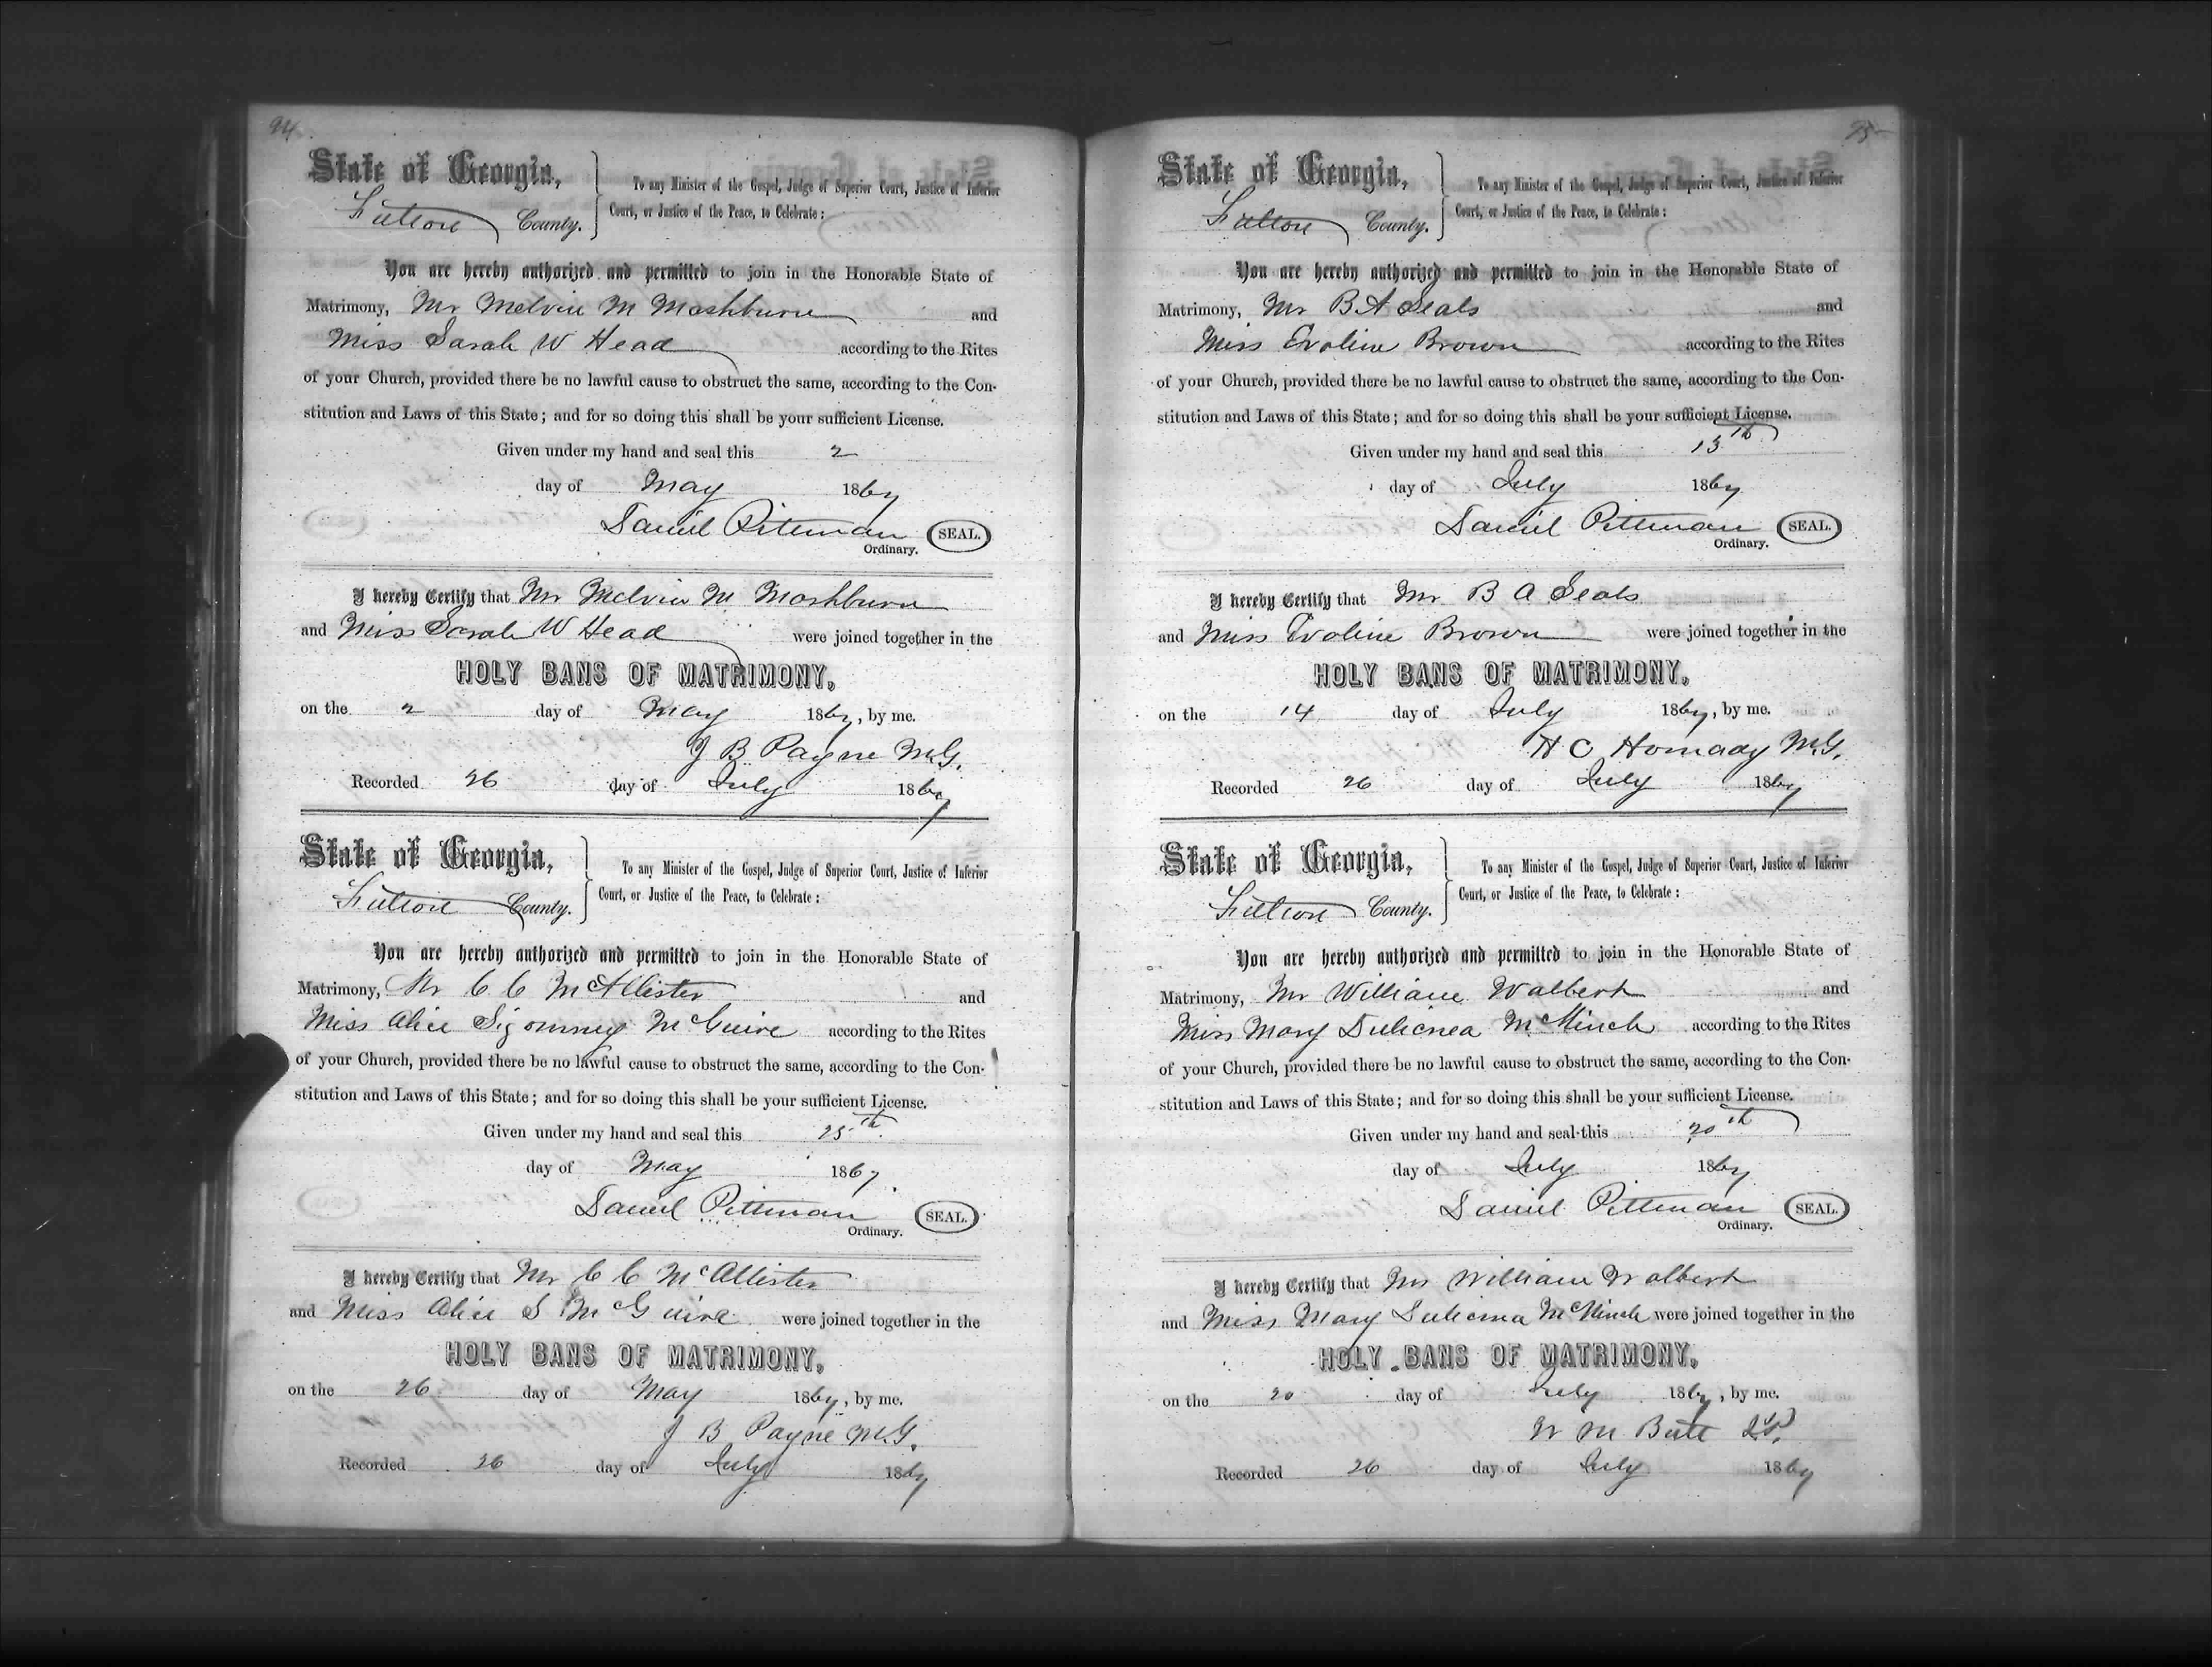 94
State of Georgia,
Fulton County.
To any Minister of the Gospel, Judge of Superior Court, Justice of Inferior
Court, or Justice of the Peace, to Celebrate:
You are hereby authorized and permitted to join in the Honorable State of
Matrimony, Mr Melvin M Mashburn and
Miss Sarah W Head according to the Rites
of your Church, provided there be no lawful cause to obstruct the same, according to the Con-
stitution and Laws of this State; and for so doing this shall be your sufficient License.
Given under my hand and seal this 2
day of May 1867
Daniel Pittman SEAL.
Ordinary.
I hereby Certify that Mr Melvin M Mashburn
and Miss Sarah W Head were joined together in the
HOLY BANS OF MATRIMONY,
on the 2 day of May 1867, by me.
J B Payne M.G.
Recorded 26 day of July 1867
State of Georgia,
Fulton County.
To any Minister of the Gospel, Judge of Superior Court, Justice of Inferior
Court, or Justice of the Peace, to Celebrate:
You are hereby authorized and permitted to join in the Honorable State of
Matrimony, Mr C C McAllister and
Miss Alice Sigourney McGuire according to the Rites
of your Church, provided there be no lawful cause to obstruct the same, according to the Con-
stitution and Laws of this State; and for so doing this shall be your sufficient License.
Given under my hand and seal this 25th
day of May 1867.
Daniel Pittman SEAL.
Ordinary.
I hereby Certify that Mr C C McAllister
and Miss Alice S McGuire were joined together in the
HOLY BANS OF MATRIMONY,
on the 26 day of May 1867, by me.
J B Payne M.G.
Recorded 26 day of July 1867
95
State of Georgia,
Fulton County.
To any Minister of the Gospel, Judge of Superior Court, Justice of Inferior
Court, or Justice of the Peace, to Celebrate:
You are hereby authorized and permitted to join in the Honorable State of
Matrimony, Mr B A Seals and
Miss Evoline Brown according to the Rites
of your Church, provided there be no lawful cause to obstruct the same, according to the Con-
stitution and Laws of this State; and for so doing this shall be your sufficient License.
Given under my hand and seal this 13th
day of July 1867
Daniel Pittman SEAL.
Ordinary.
I hereby Certify that Mr B A Seals
and Miss Evoline Brown were joined together in the
HOLY BANS OF MATRIMONY,
on the 14 day of July 1867, by me.
H C Hornady M.G.
Recorded 26 day of July 1867
State of Georgia,
Fulton County.
To any Minister of the Gospel, Judge of Superior Court, Justice of Inferior
Court, or Justice of the Peace, to Celebrate:
You are hereby authorized and permitted to join in the Honorable State of
Matrimony, Mr William Walbert and
Miss Mary McMinch according to the Rites
of your Church, provided there be no lawful cause to obstruct the same, according to the Con-
stitution and Laws of this State; and for so doing this shall be your sufficient License.
Given under my hand and seal this 20th
day of July 1867
Daniel Pittman SEAL.
Ordinary.
I hereby Certify that Mr William Walbert
and Miss Mary McMinch were joined together in the
HOLY BANS OF MATRIMONY,
on the 20 day of July 1867, by me.
W M Butt J.P.
Recorded 26 day of July 1867